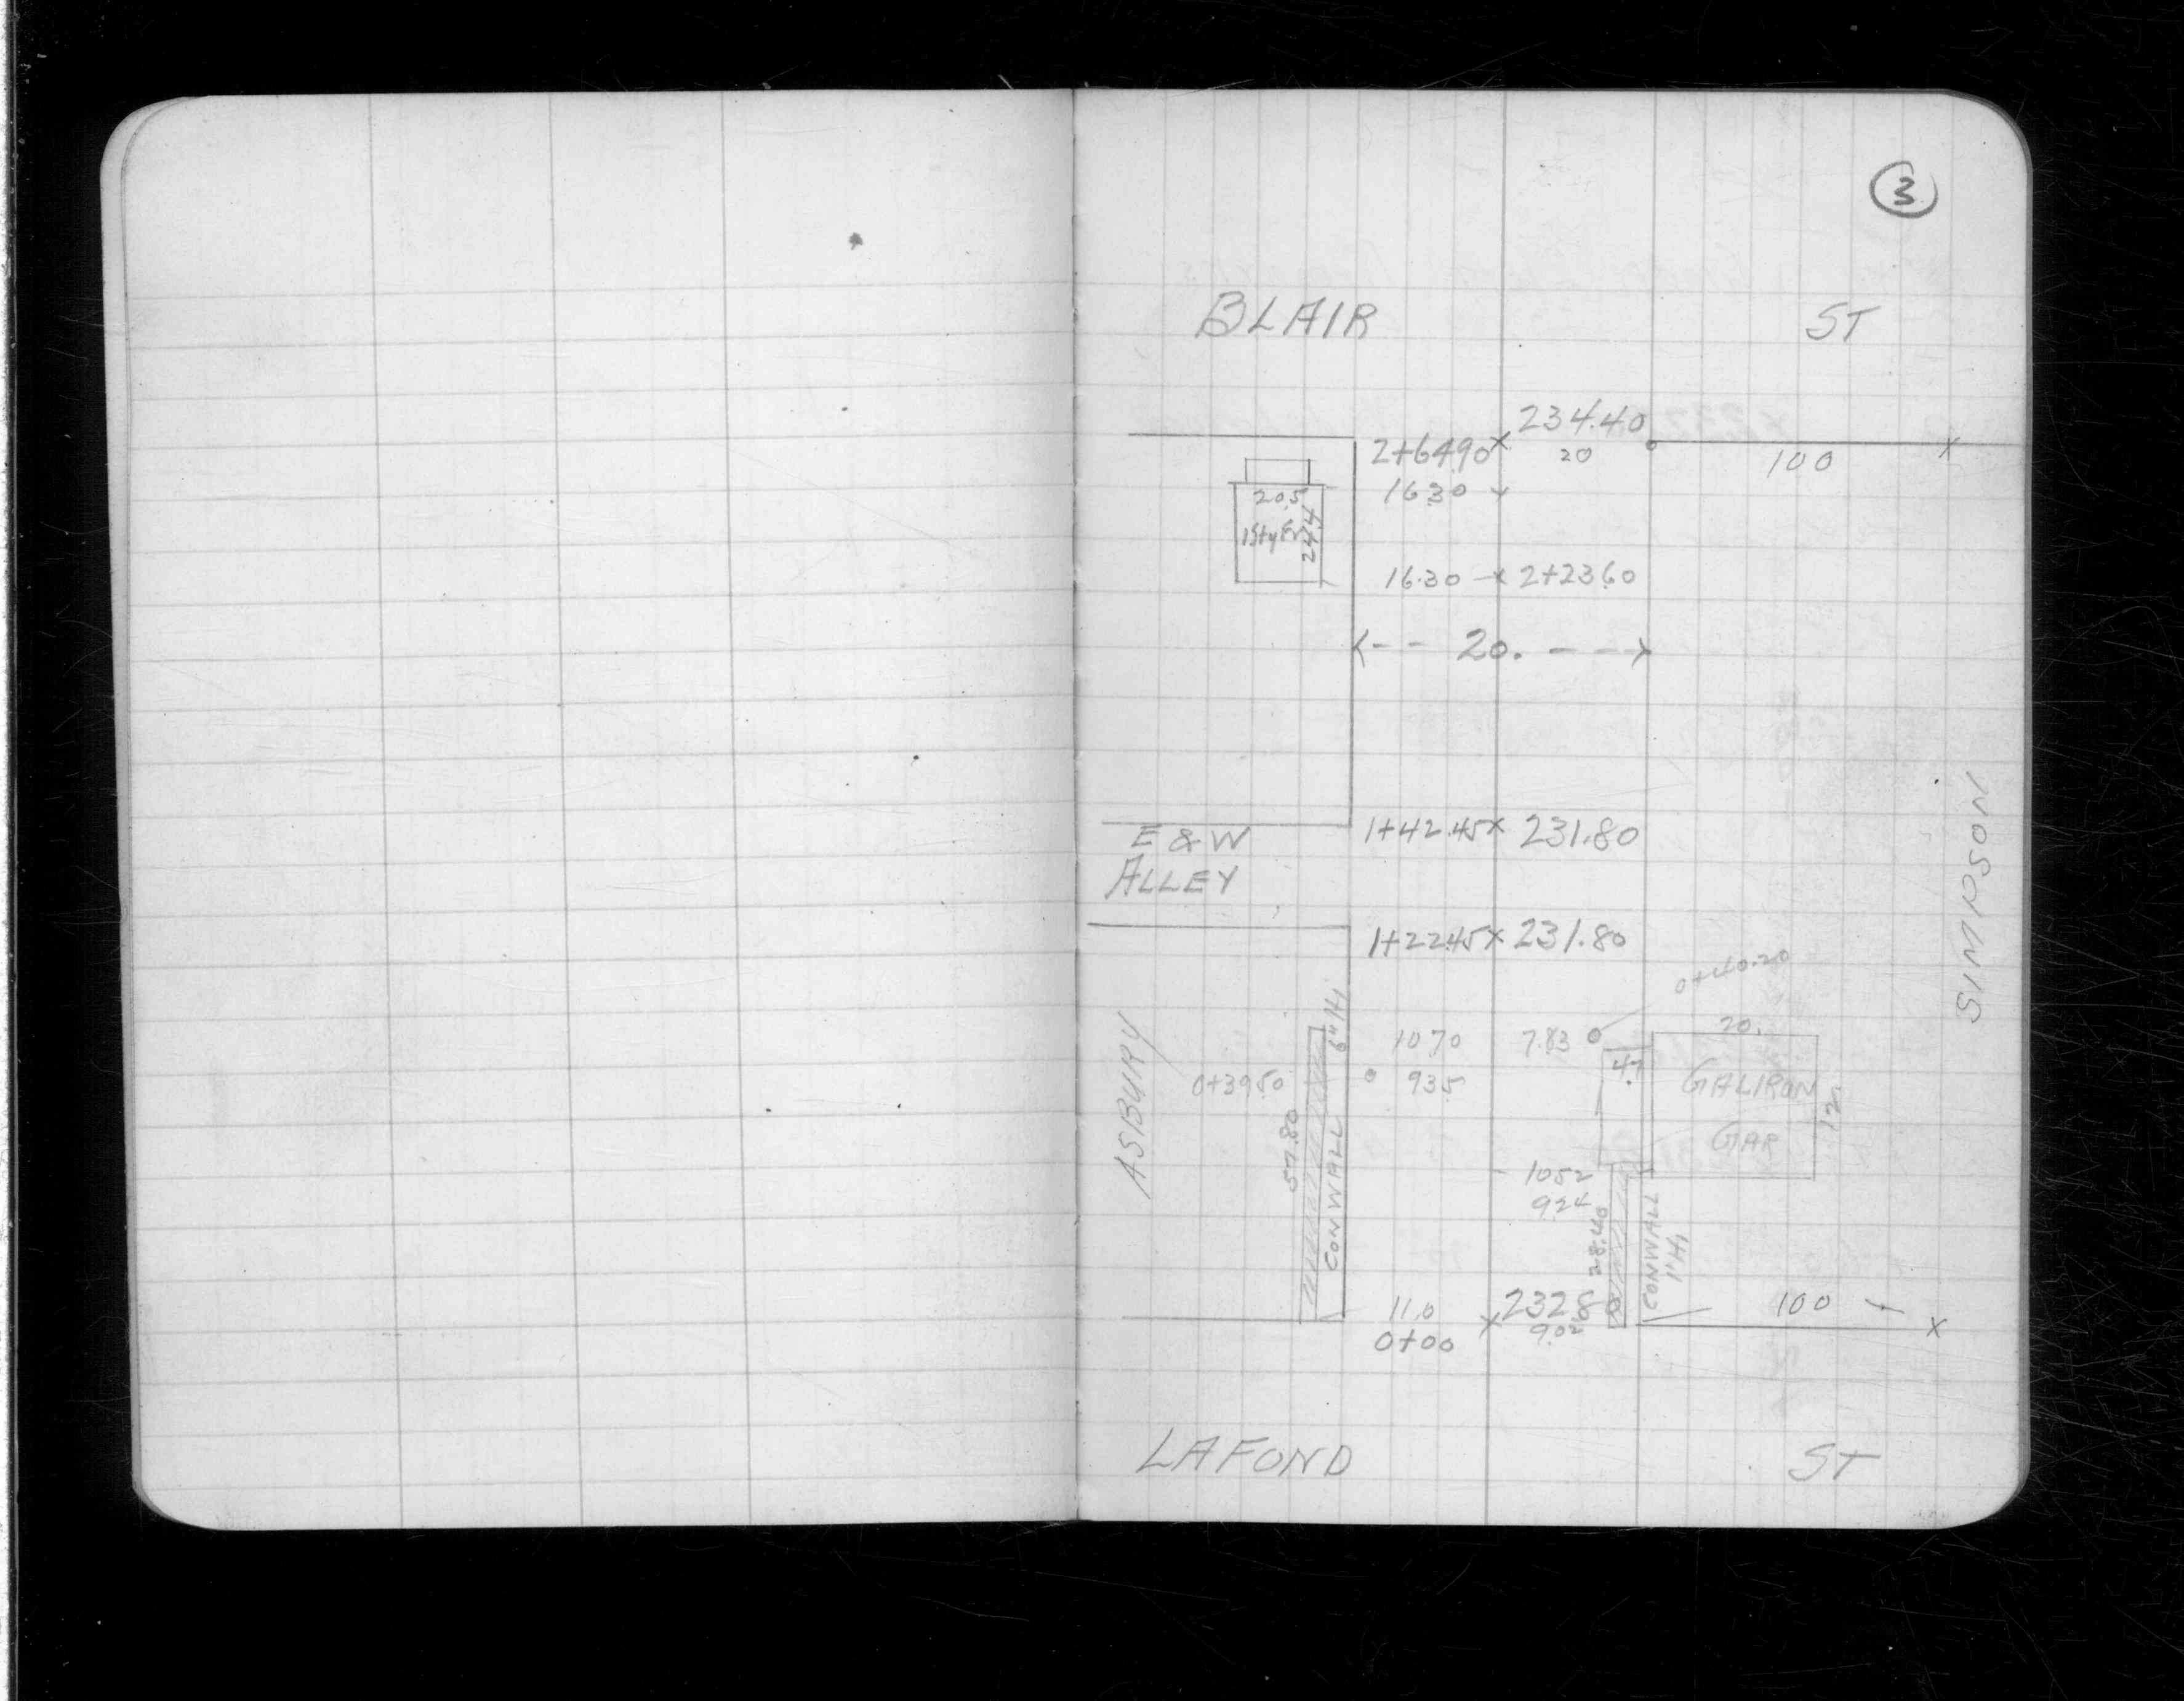 3
BLAIR ST
234.40
2+64.90 x 20 100 x
20.5 16.30
1 Sty Fr
24.4
16.30 -x 2+23.60
<-- 20. --->
1+42.45 x 231.80
E & W
ALLEY
SIMPSON
1+22.45 x 231.80
0+40.20
ASBURY
6" Hi
10.70 7.83 20.
0+39.50 9.35 4.7 GAL IRON
12.
57.80 GAR
CON WALL
10.52
9.24
28.40
CON WALL
1' Hi
11.0 x 232.80 100 x
0+00 9.02
LAFOND ST